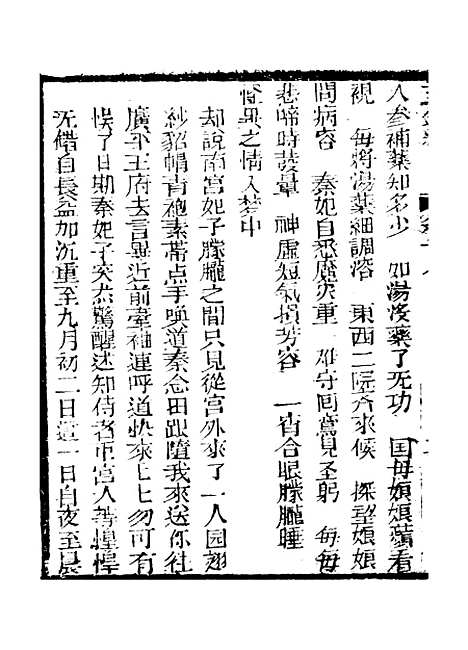 人参補藥知多少　如湯潑藥了无功　国母娘娘續看
視　毎將湯藥細調溶　東西二區齐來候　探望娘娘
問病容　秦妃自悉魔灾重　难守囘鸞見圣躬　毎毎
悲啼時發暈　神虛短氣損芳容　一宵合眼朦朧睡
怪異之情入梦中
却說南宮妃子朦朧之間只見從宮外來了一人园翅
紗貂帽青袍素蒂点手喚道秦念田跟隨我來送你往
廣平王府去言畢近前牽袖連呼道快來七七勿可有
悮了日期秦妃子突然驚醒述知侍者中宮人等惶惶
无偕自長益加沉重至九月初二日這一日自夜至晨